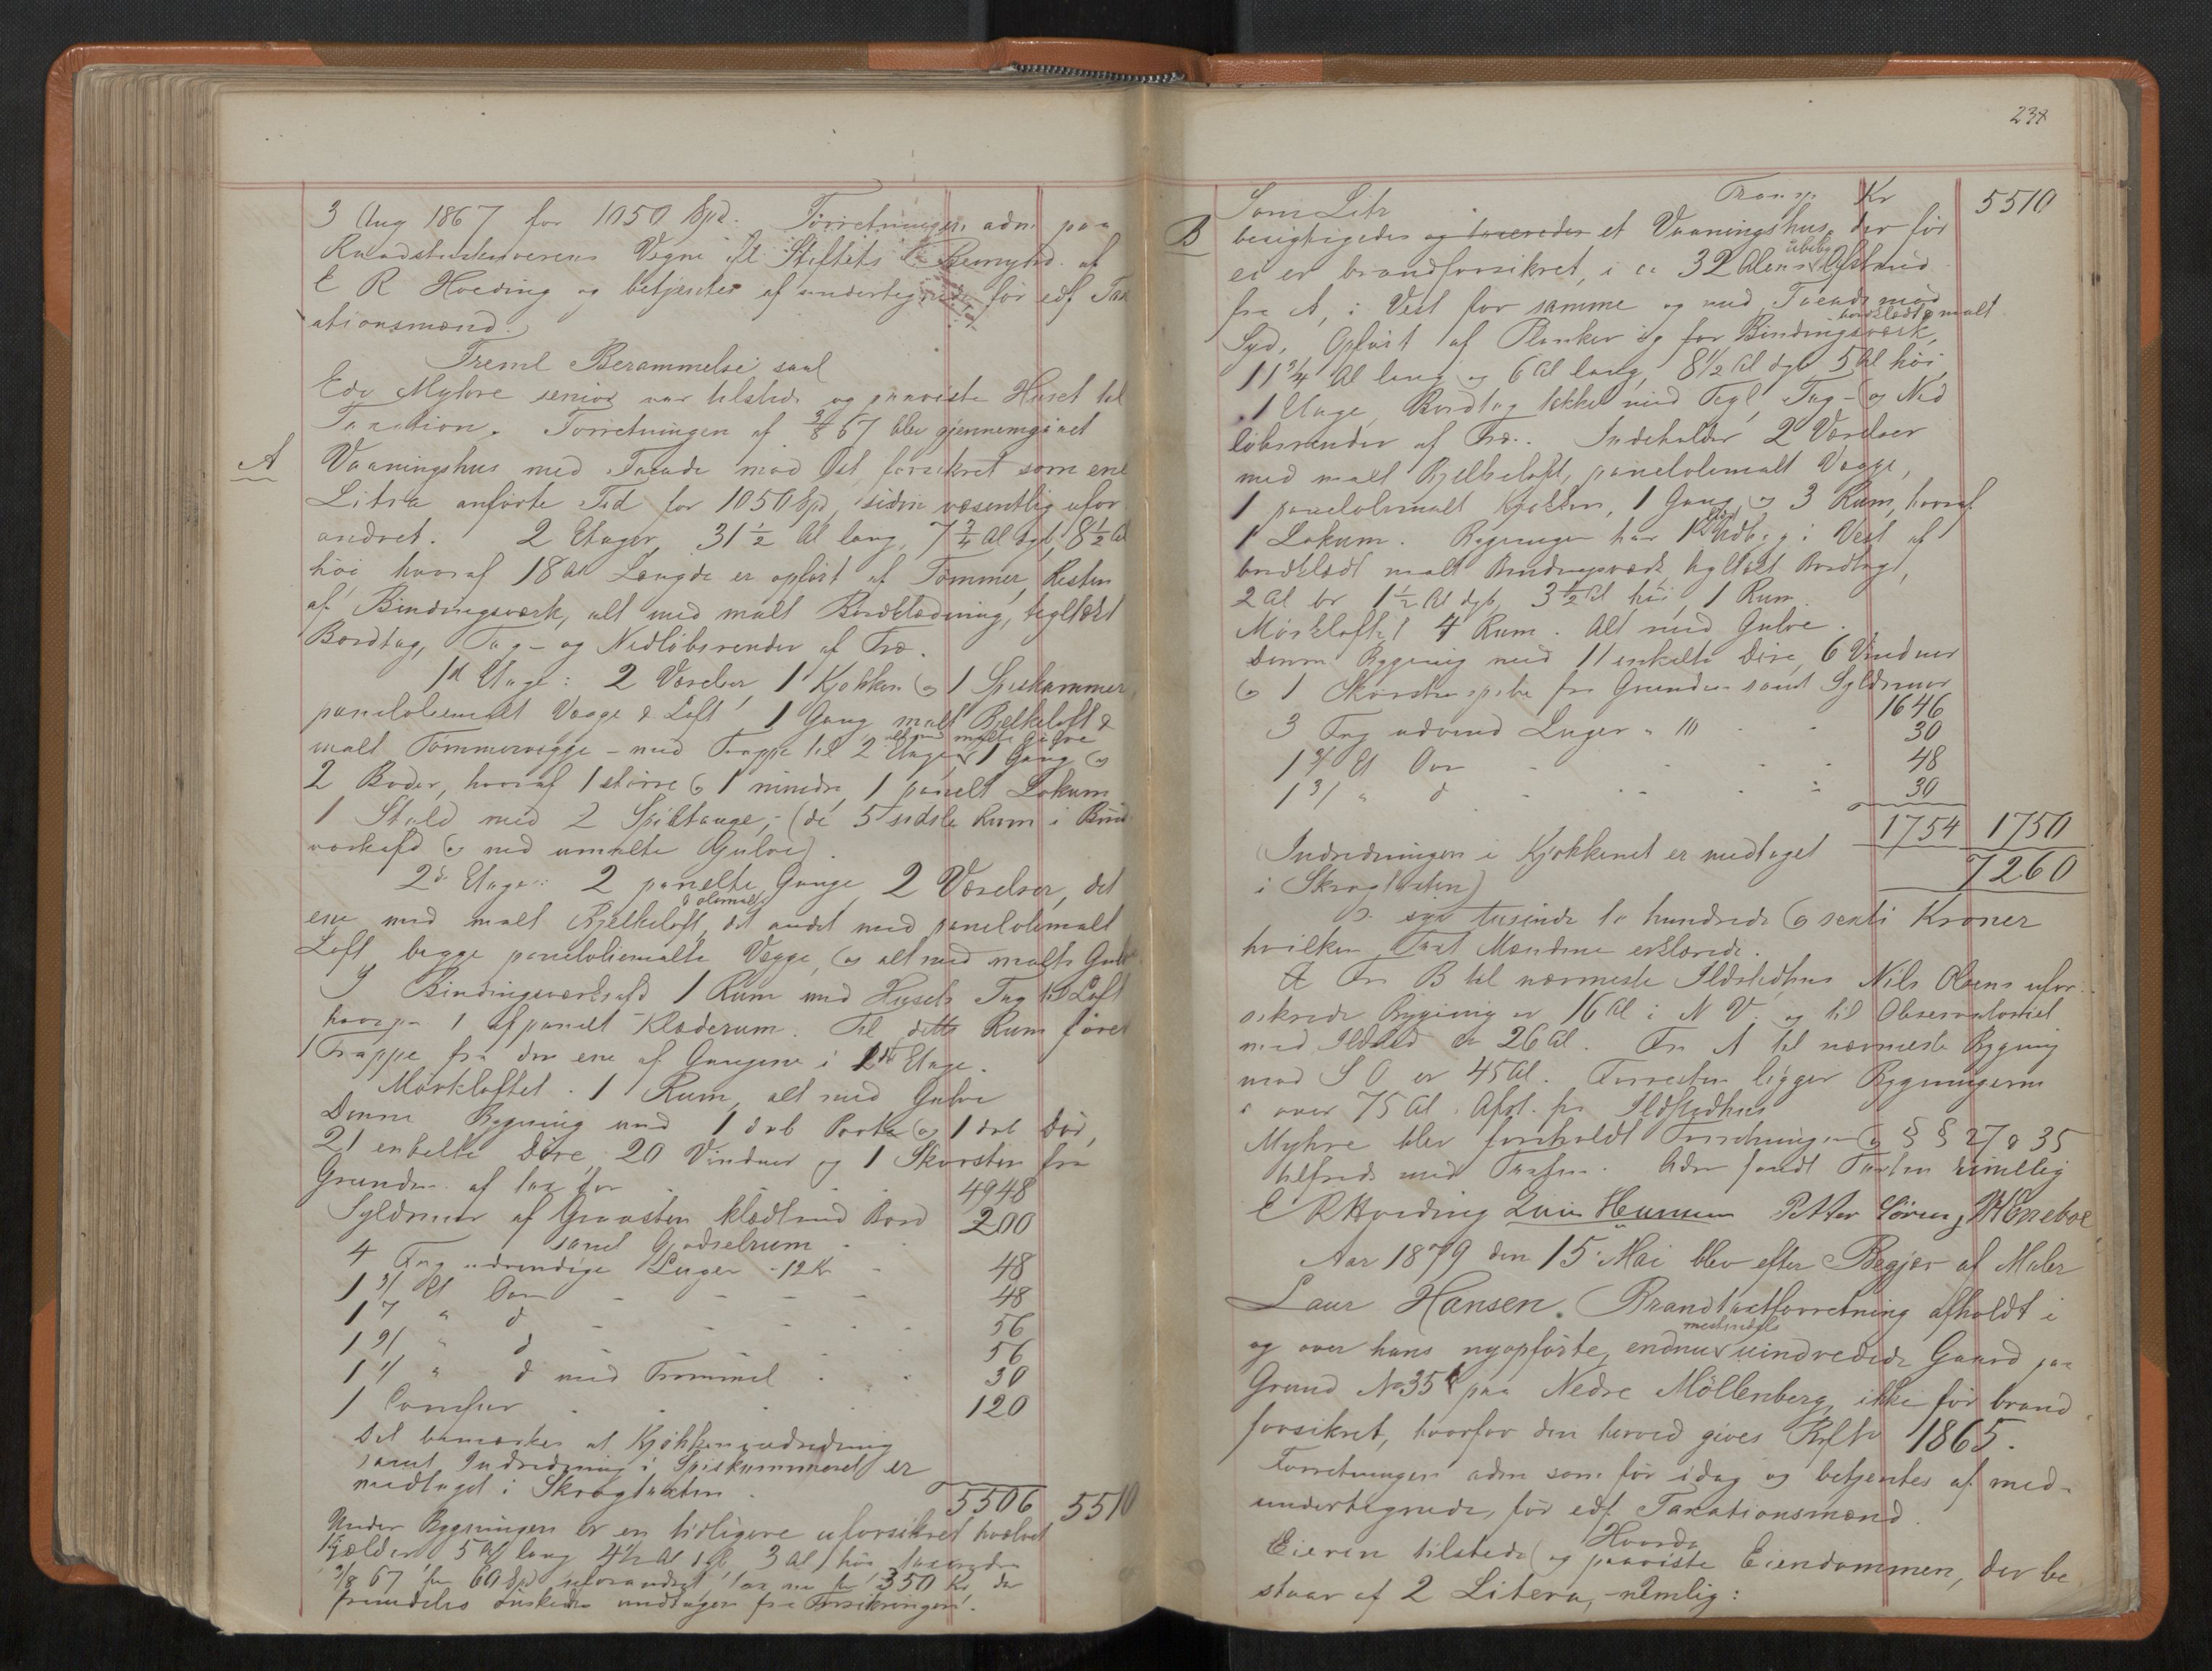 3 Aug 1867 for 1050 Spd. Forretningen adm paa
Raadstueskriverens Vegne ifl Stiftets Bemynd. af
E R Hoeding og betjentes af undertegnede før edf Tax
ationsmænd.
Freml Berammelse saal
Edv Myhre senior var tilstede og paaviste Huset til
Taxation. Forretningen af 3/8 67 blev gjennemgaaet
A Vaaningshus med Facade mod Øst, forsikret som ene
Litra anførte Tid for 1050 Spd, siden væsentlig ufor
andret. 2 Etager, 31 1/2 Al lang, 7 3/4 Al dyb, 8 1/2 Al
høi hvoraf 18 Al Længde er opført af Tømmer, Resten
af Bindingsværk, alt med malt Bordklædning, tegltækt
Bordtag, Tag- og Nedløbsrender af Træ.
1st Etage: 2 Værelser 1 Kjøkken og 1 Spiskammer,
paneloliemalt Vægge & Loft, 1 Gang malt Bjelkeloft &
malt Tømmervægge - med Trappe til 2 Etage, alt med malte Gulve 1 Gang og
2 Boder, hvoraf 1 større og 1 mindre, 1 panelt Lokum
1 Stald med 2 Spiltauge, - (de 5 sidste Rum i Bind
værksafd og med umalte Gulve).
2d Etage: 2 panelte & oliemalte Gange, 2 Værelser, det
ene med malt Bjelkeloft, det andet med paneloliemalt
Loft, begge paneloliemalte Vægge, og alt med malte Gulve
I Bindingsværksafd 1 Rum med Husets Tag til Loft
hvorpaa 1 afpanelt Klæderum. Til dette Rum fører
1 Trappe fra den ene af Gangene i 1st Etage.
Mørkloftet. 1 Rum, alt med Gulve
Denne Bygning med 1 dob Port og 1 dob Dør,
21 enkelte Døre, 20 Vinduer og 1 Skorsten fra
Grunden af tax for 4948
Syldmur af Graasten klædt med Bord 200
samt Gjødselrum
4 Fag udvendige Luger - 12 Kr - 48
1 3/ Et Ovn - - - - 48
1 7 " d - - - - 56
1 2/ " d - - - - 56
1 1/ " d med Trommel - - 30
1 Comfur 120
Det bemærkes at Kjøkkenindredning
samt Indredning i Spiskammeret er
medtaget i Skrogtaxten.
5506 5510
Under Bygningen er en tidligere uforsikret hvælvet
Kjælder 5 Al lang 4 1/2 Al dyb, 3 Al høi taxeredes
3/8 67 for 60 Spd uforandret, tax nu for 350 Kr, der
fremdeles ønskedes undtagen fra Forsikringen.
238
Transp Kr 5510
Som Litr
B besigtigedes og taxeredes et Vaaningshus, der før
ei er brandforsikret, i ca 32 Alens ubebyg Afstand
fra A, i Vest for samme og med Facade mod
Syd. Opført af Planker og for bordklædt & malt Bindingsværk,
11 3/4 Al lang og 6 Al lang, 8 1/2 Al dyb 5 Al høi,
1 Etage, Bordtag tækket med Tegl, Tag- og Ned
løbsrender af Træ. Indeholder 2 Værelser
med malt Bjelkeloft, paneloliemalt Vægge,
1 paneloliemalt Kjøkken, 1 Gang og 3 Rum, hvoraf
1 Lokum. Bygningen har 1 Udbyg i Vest af
bordklædt malt Bindingsværk tegltækt Bordtag,
2 Al br 1 1/2 Al dyb, 3 1/2 Al høi, 1 Rum.
Mørkloftet 4 Rum. Alt med Gulve.
Denne Bygning med 11 enkelte Døre, 6 Vinduer
og 1 Skorstenspibe fra Grunden samt Syldmur
1646
3 Fag udvend Luger a 10 - - 30
1 3/ Et Ovn - - - - 48
1 3/ " d - - - - 30
1754 1750
(Indredningen i Kjøkkenet er medtaget
7260
i Skrogtaxten)
syv tusinde to hundrede og sexti Kroner
hvilken Taxt Mændene erklærede.
Fra B til nærmeste Ildstedhus Nils Olsens ufor
sikrede Bygning er 16 Al i N V. og til Observatoriet
med Ildsted ca 26 Al. Fra A til nærmeste Bygning
mod S O er 45 Al. Forresten ligger Bygningerne
i over 75 Al. Afst. fra Ildstedhus
Myhre blev foreholdt Forretningen og § § 27 & 35
tilfreds med Taxten. Adm fandt Taxten rimelig
E R Hoeding Petter Sørens
Aar 1879 den 15 Mai blev efter Begjær af Maler
Laur Hansen. Brandtaxtforretning afholdt i
og over hans nyopførte, endnu mestendels uindredede Gaard paa
Grund No 35 b paa Nedre Möllenberg, ikke før brand
forsikret, hvorfor den herved gives Rflb 1865.
Forretningen adm som før idag og betjentes af med-
undertegnede, før edf Taxationsmænd.
Eieren tilstede og paaviste Eiendommen, der be
staar af 2 Litera, nemlig: